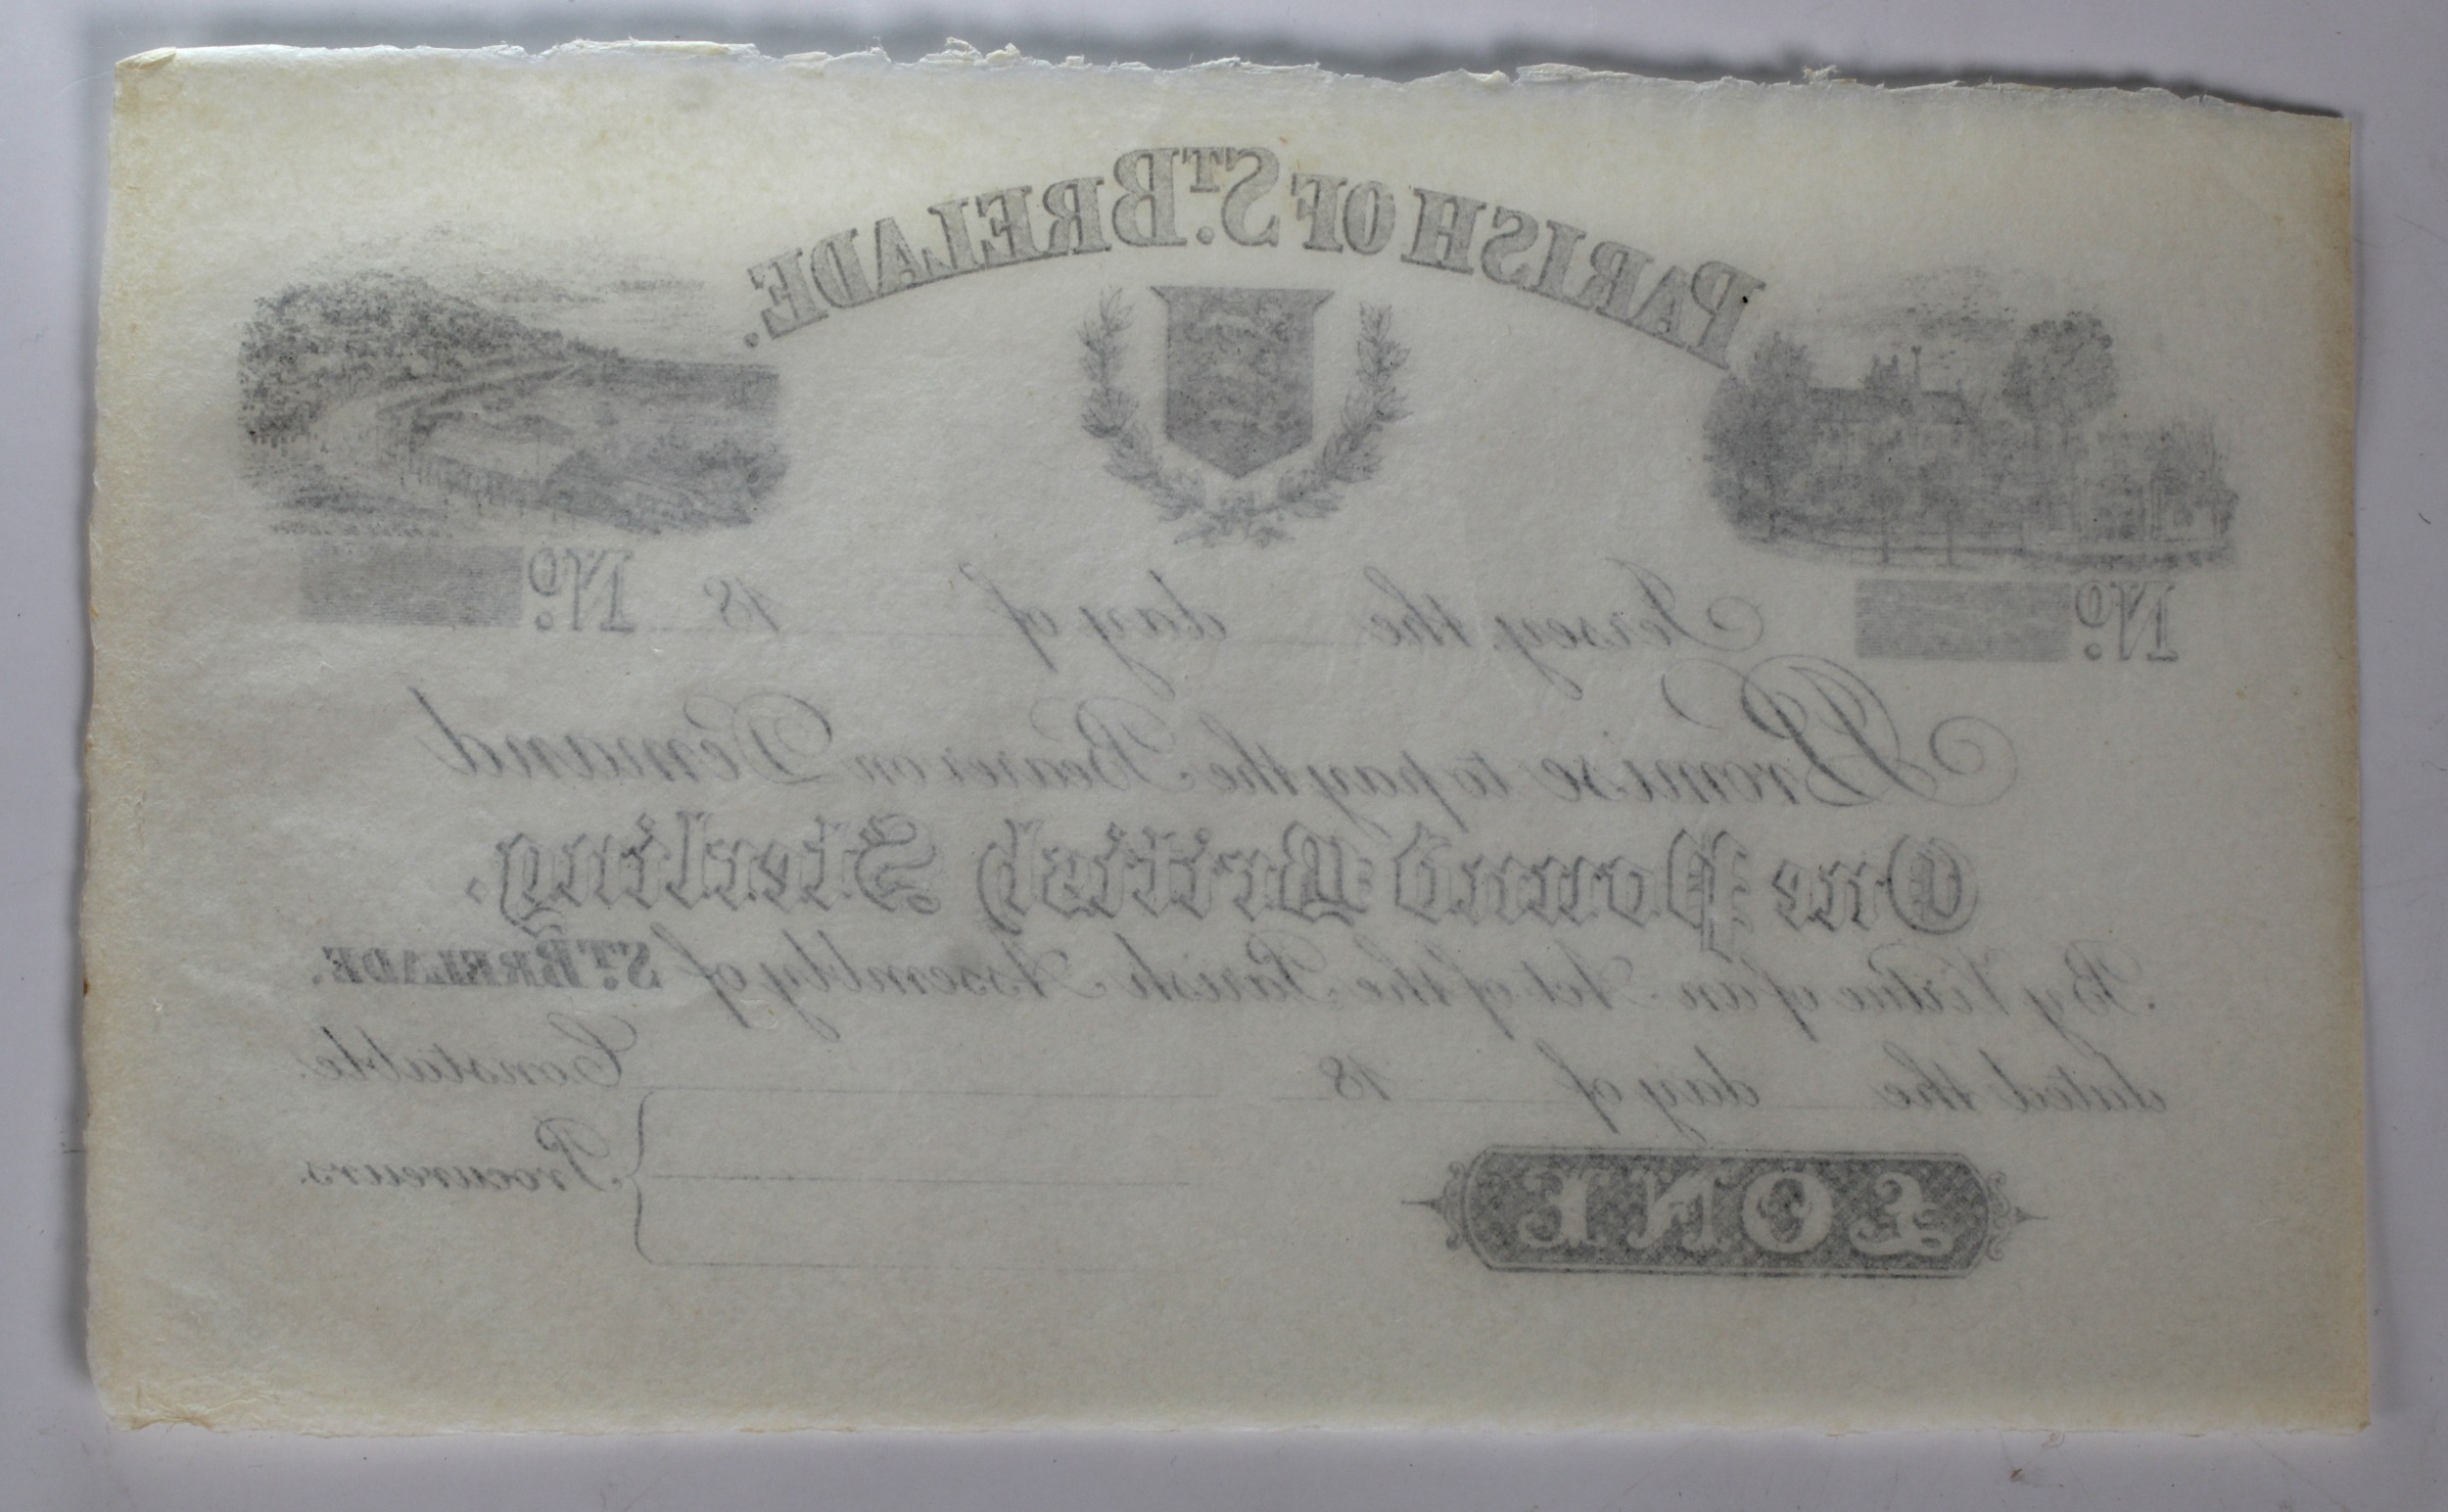 PARISH OF ST. BRELADE.
No. Jersey, the day of 18 No.
Promise to pay the Bearer on Demand
One Pound British Sterling.
By Virtue of an Act of the Parish Assembly of ST. BRELADE.
dated the day of 18 Constable.
£ONE Procureurs.